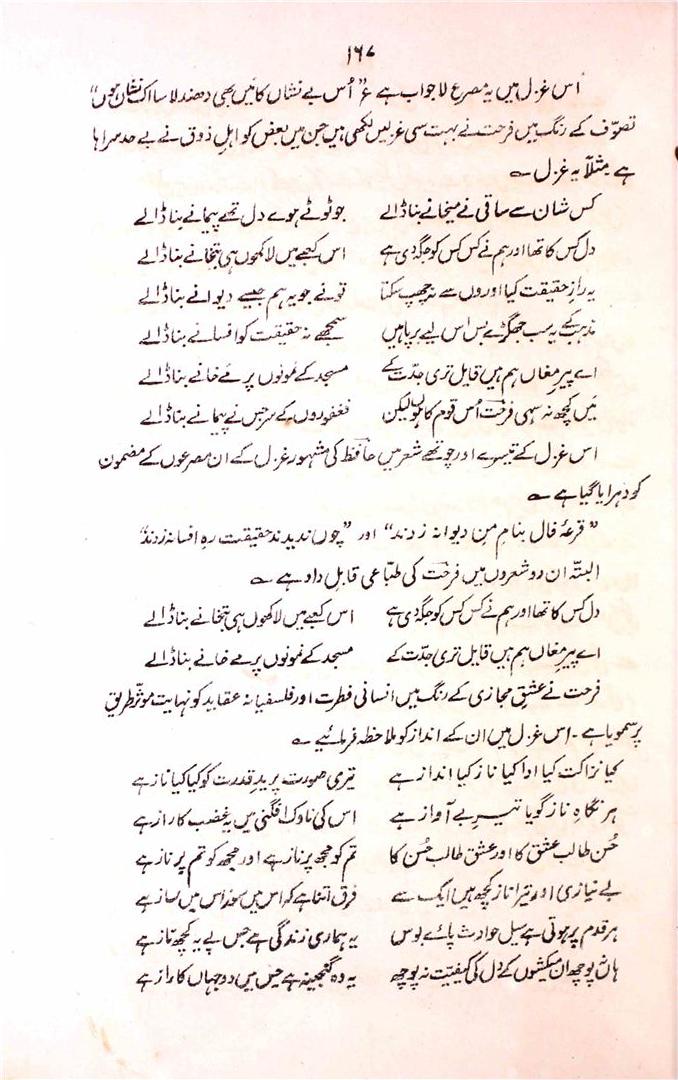 ۱۶۷
اُس غزل میں یہ مصرع لاجواب ہے ع "اُس بے نشاں کا میں بھی دھندلا سا اک نشاں ہوں"
تصوّف کے رنگ میں فرحت نے بہت سی غزلیں لکھی ہیں جن میں بعض کو اہلِ ذوق نے بے حد سراہا
ہے مثلاً یہ غزل ؎
کس شان سے ساقی نے میخانے بنا ڈالے جو ٹوٹے ہوے دل تھے پیمانے بنا ڈالے
دل کس کا تھا اور ہم نے کس کس کو جگہ دی ہے اس کعبے میں لاکھوں ہی بتخانے بنا ڈالے
یہ رازِ حقیقت کیا اوروں سے نہ چھپ سکتا تو نے جو یہ ہم جیسے دیوانے بنا ڈالے
مذہب کے یہ سب جھگڑے بس اس لیے برپا ہیں سمجھے نہ حقیقت کو افسانے بنا ڈالے
اے پیرِ مغاں ہم ہیں قایل تری جدّت کے مسجد کے نمونوں پر مے خانے بنا ڈالے
میں کچھ نہ سہی فرحت اُس قوم کا ہوں لیکن فغفوروں کے سر جس نے پیمانے بنا ڈالے
اس غزل کے تیسرے اور چوتھے شعر میں حافظ کی مشہور غزل کے ان مصرعوں کے مضمون
کو دہرایا گیا ہے ؎
"قرعۂ فال بنامِ من دیوانہ زدند" اور "چوں ندیدند حقیقت رہِ افسانہ زدند"
البتّہ ان دو شعروں میں فرحت کی طبّاعی قابلِ داد ہے ؎
دل کس کا تھا اور ہم نے کس کس کو جگہ دی ہے اس کعبے میں لاکھوں ہی بتخانے بنا ڈالے
اے پیرِ مغاں ہم ہیں قایل تری جدّت کے مسجد کے نمونوں پر مے خانے بنا ڈالے
فرحت نے عشقِ مجازی کے رنگ میں انسانی فطرت اور فلسفیانہ عقاید کو نہایت موثر طریق
پر سمویا ہے۔ اس غزل میں ان کے انداز کو ملاحظہ فرمائیے ؎
کیا نزاکت کیا ادا کیا ناز کیا انداز ہے تیری صورت پر یدِ قدرت کو کیا کیا ناز ہے
ہر نگاہِ ناز گویا تیرِ بے آواز ہے اس کی ناوک افگنی میں یہ غضب کا راز ہے
حُسن طالب عشق کا اور عشق طالب حُسن کا تم کو مجھ پر ناز ہے اور مجھ کو تم پر ناز ہے
بے نیازی اور تیرا ناز کچھ ہیں ایک سے فرق اتنا ہے کہ اس میں سوز اس میں ساز ہے
ہر قدم پر ہوتی ہے سیل حوادث پائے بوس یہ ہماری زندگی ہے جس پے یہ کچھ ناز ہے
ہاں پوچھ ان میکشوں کے دل کی کیفیّت نہ پوچھ یہ وہ گنجینہ ہے جس میں دو جہاں کا راز ہے